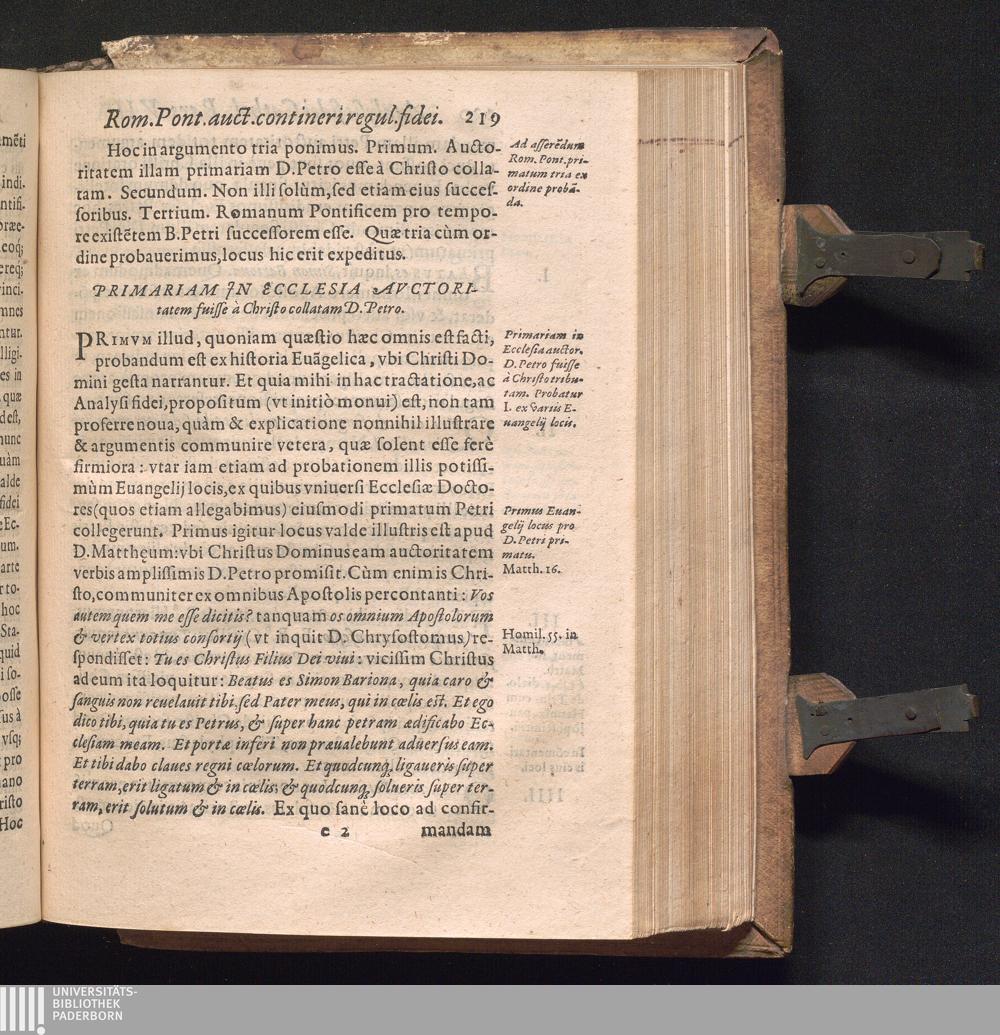 Rom. Pont. auct. contineri regul. fidei. 219
Hoc in argumento tria ponimus. Primum. Aucto-
ritatem illam primariam D. Petro esse à Christo colla-
tam. Secundum. Non illi solùm, sed etiam eius succes-
soribus. Tertium. Romanum Pontificem pro tempo-
re existẽtem B. Petri successorem esse. Quæ tria cùm or-
dine probauerimus, locus hic erit expeditus.
Ad asserẽdum
Rom. Pont. pri-
matum tria ex
ordine probã-
da.
PRIMARIAM IN ECCLESIA AVCTORI-
tatem fuisse à Christo collatam D. Petro.
PRIMVM illud, quoniam quæstio hæc omnis est facti,
probandum est ex historia Euãgelica, vbi Christi Do-
mini gesta narrantur. Et quia mihi in hac tractatione, ac
Analysi fidei, propositum (vt initiò monui) est, non tam
proferre noua, quàm & explicatione nonnihil illustrare
& argumentis communire vetera, quæ solent esse ferè
firmiora: vtar iam etiam ad probationem illis potissi-
mùm Euangelij locis, ex quibus vniuersi Ecclesiæ Docto-
res (quos etiam allegabimus) eiusmodi primatum Petri
collegerunt. Primus igitur locus valde illustris est apud
D. Matthęum: vbi Christus Dominus eam auctoritatem
verbis amplissimis D. Petro promisit. Cùm enim is Chri-
sto, communiter ex omnibus Apostolis percontanti: Vos
autem quem me esse dicitis? tanquam os omnium Apostolorum
& vertex totius consortij (vt inquit D. Chrysostomus) re-
spondisset: Tu es Christus Filius Dei viui: vicissim Christus
ad eum ita loquitur: Beatus es Simon Bariona, quia caro &
sanguis non reuelauit tibi, sed Pater meus, qui in cœlis est. Et ego
dico tibi, quia tu es Petrus, & super hanc petram ædificabo Ec-
clesiam meam. Et portæ inferi non præualebunt aduersus eam.
Et tibi dabo claues regni cœlorum. Et quodcunq; ligaueris super
terram, erit ligatum & in cœlis; & quodcunq; solueris super ter-
ram, erit solutum & in cœlis. Ex quo sanè loco ad confir-
e 2 mandam
Primariam in
Ecclesia auctor.
D. Petro fuisse
à Christo tribu-
tam. Probatur
I. ex variis E-
uangelij locis.
Primus Euan-
gelij locus pro
D. Petri pri-
matu.
Matth. 16.
Homil. 55. in
Matth.
UNIVERSITÄTS-
BIBLIOTHEK
PADERBORN